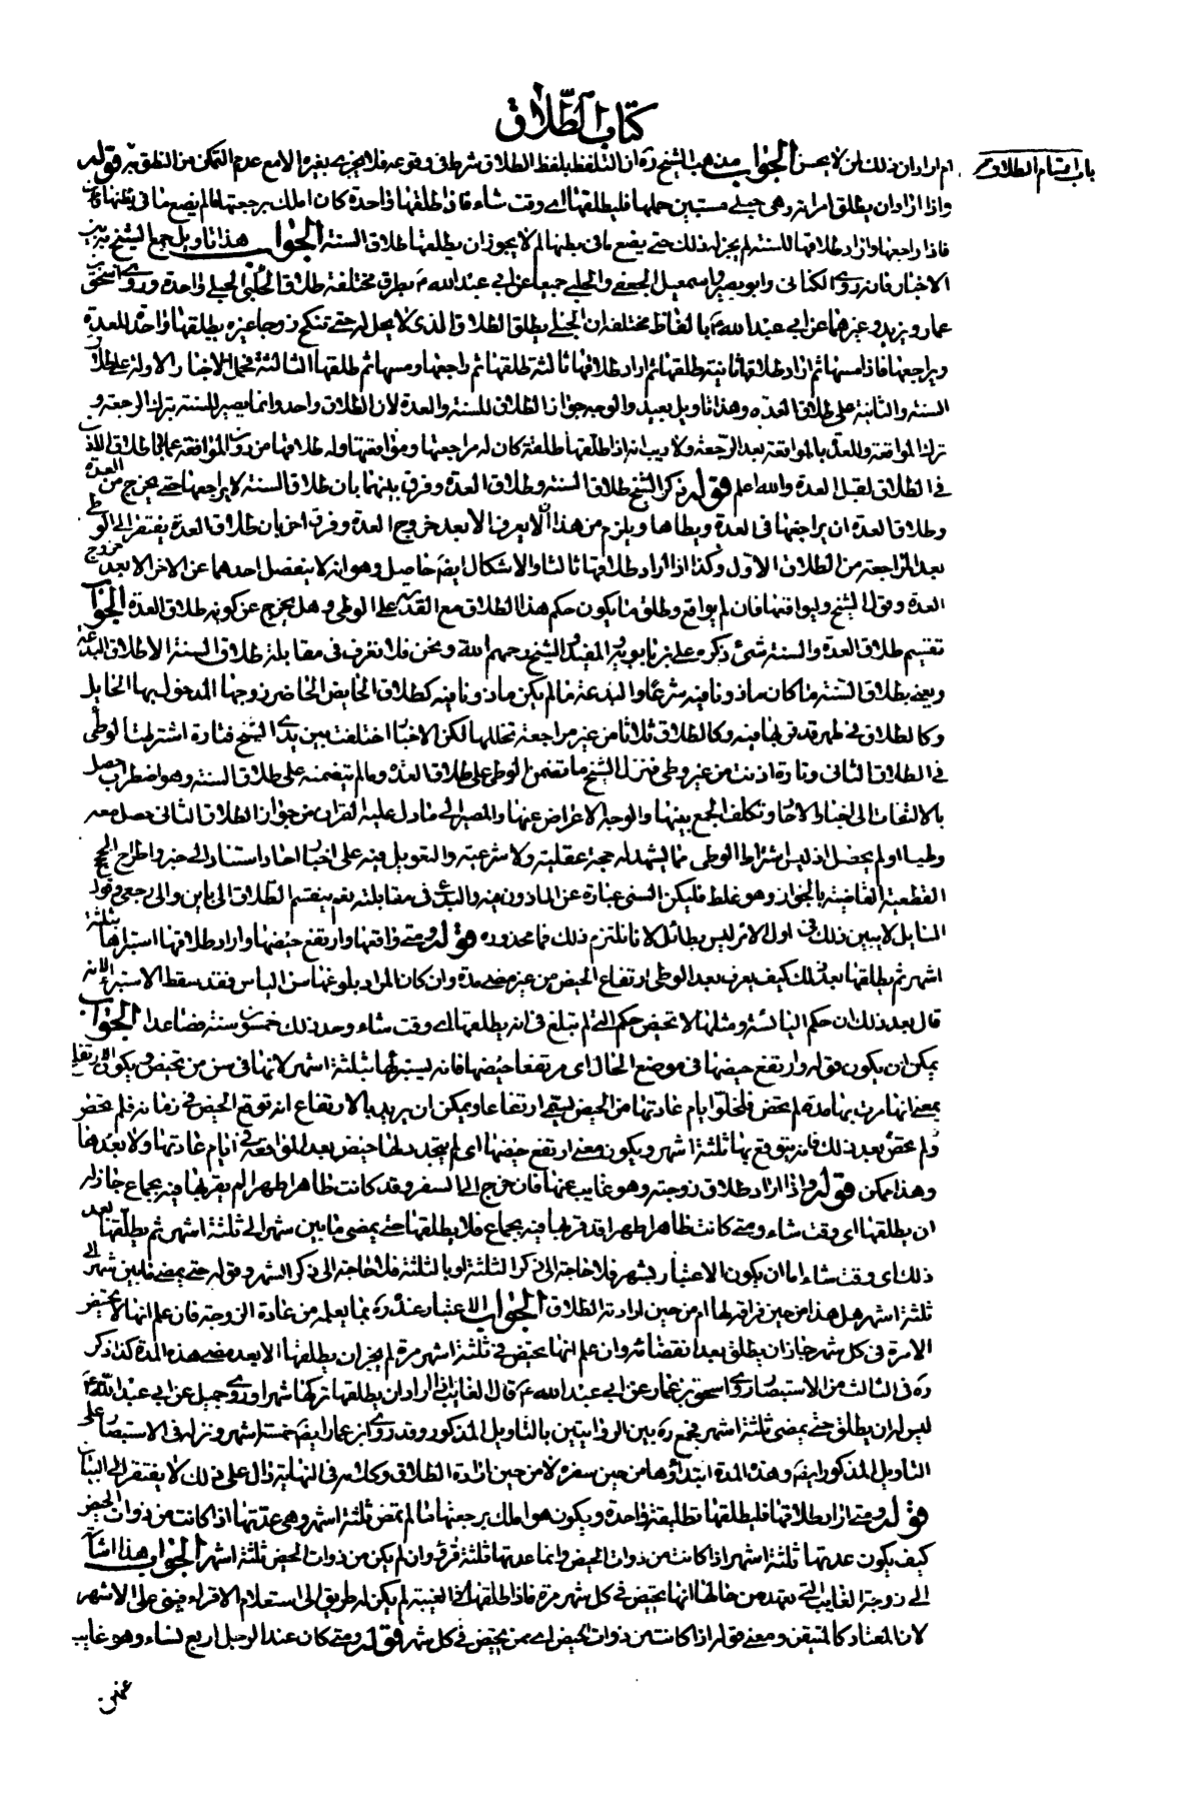 كتاب الطلاق
باب اقسام الطلاق
ام اراد ان ذلك لمن لا يحسن الجواب مذهب الشيخ ره ان التلفظ بلفظ الطلاق شرط في وقوعه فلا يجزي بغيره الا مع عدم التمكن من النطق به قوله
واذا اراد ان يطلق امراته وهي حبلى مستبين حملها فليطلقها اى وقت شاء فاذا طلقها واحدة كان املك برجعتها ما لم يضع ما في بطنها
فاذا راجعها واراد طلاقها للسنة لم يجز له ذلك حتى يضع ما في بطنها لم لا يجوز ان يطلقها طلاق السنة الجواب هذا تاويل جمع الشيخ به بين
الاخبار فانه روى الكنانى وابو بصير واسمعيل الجعفي والحلبي جميعا عن ابي عبد الله ع بطرق مختلفة طلاق الحبلى واحدة وروى اسحق
عمار ويزيد وغيرهما عن ابي عبد الله ع بالفاظ مختلفة ان الحبلى يطلق الطلاق الذي لا يحل له حتى تنكح زوجا غيره يطلقها واحدة للعدة
ويراجعها فاذا مسها ثم اراد طلاقها ثانية طلقها ثم اراد طلاقها ثالثة طلقها ثم راجعها ومسها ثم طلقها الثالثة فحمل الاخبار الاولة على طلاق
السنة والثانية على طلاق العدة وهذا تاويل بعيد والوجه جواز الطلاق للسنة والعدة لان الطلاق واحد وانما يصير للسنة بترك الرجعة و
ترك المواقعة وللعدة بالمواقعة بعد الرجعة ولا ريب انه اذا طلقها طلقة كان له مراجعتها ومواقعتها وله طلاقها من دون المواقعة
في الطلاق لقبل العدة والله اعلم قوله ذكر الشيخ طلاق السنة وطلاق العدة وفرق بينهما بان طلاق السنة لا يراجعها حتى يخرج من العدة
وطلاق العدة ان يراجعها في العدة ويطاها ويلزم من هذا الا يعرف الا بعد خروج العدة وفرق اخر بان طلاق العدة يفتقر الى الوطي
بعد المراجعة من الطلاق الاول وكذا اذا اراد طلاقها ثالثا والاشكال ايضا حاصل وهو انه لا ينفصل احدهما عن الاخر الا بعد خروج
العدة وقول الشيخ وليواقعها فان لم يواقع وطلق ما يكون حكم هذا الطلاق مع القدرة على الوطي وهل يخرج عن كونه طلاق العدة الجواب
تقسيم طلاق العدة والسنة شئ ذكره على بن بابويه والمفيد والشيخ رحمهم الله ونحن فلا نعرف في مقابلة طلاق السنة الا طلاق البدعة
ويعنى بطلاق السنة ما كان ماذونا فيه شرعا والبدعة ما لم يكن ماذونا فيه كطلاق الحايض الحاضر زوجها المدخول بها الحايل
وكالطلاق في طهر قد قربها فيه وكالطلاق ثلاثا من غير مراجعة تخللها لكن الاخبار اختلفت بين يدى الشيخ فتارة اشترطت الوطي
في الطلاق الثاني وتارة اذنت من غير وطي فنزل الشيخ ما تضمن الوطي على طلاق العدة وما لم يتضمنه على طلاق السنة وهو اضطراب حصل
بالالتفات الى اخبار الاحاد وتكلف الجمع بينها والوجه الاعراض عنها والمصير الى ما دل عليه القران من جواز الطلاق الثاني حصل معه
وطي او لم يحصل اذ ليس اشتراط الوطي مما يشهد له حجة عقلية ولا شرعية والتعويل فيه على اخبار احاد استناد الى خبر واطراح الحجج
القطعية القاضية بالجواز وهو غلط فليكن السنى عبارة عن الماذون فيه والبدعى في مقابلته نعم ينقسم الطلاق الى باين والى رجعي وقول
السايل لا يبين ذلك في اول الامر ليس بطائل لانا نلتزم ذلك فما محذوره قوله ومتى واقعها وارتفع حيضها واراد طلاقها استبراها بثلثة
اشهر ثم يطلقها بعد ذلك كيف يعرف بعد الوطي ارتفاع الحيض من غير مضى مدة وان كان المراد بلوغها سن الياس فقد سقط الاستبراء لانه
قال بعد ذلك ان حكم اليائسة ومثلها لا تحيض حكم التي لم تبلغ في انه يطلقها اى وقت شاء وحد ذلك خمسون سنة فصاعدا الجواب
يمكن ان يكون قوله وارتفع حيضها في موضع الحال اى مرتفعا حيضها فانه يستبرئها بثلثة اشهر لانها في سن من تحيض ويكون الارتفاع
بمعنى انها مرت بها مدة لم تحض فلخلو ايام عادتها من الحيض يسمى ارتفاعا ويمكن ان يريد بالارتفاع انه توقع الحيض في زمانه فلم تحض
ولم تحض بعد ذلك فانه يتوقع بها ثلثة اشهر ويكون معنى ارتفع حيضها اى لم يتجدد لها حيض بعد المواقعة في ايام عادتها ولا بعدها
وهذا ممكن قوله واذا اراد طلاق زوجته وهو غايب عنها فان خرج الى السفر وقد كانت طاهرا طهرا لم يقربها فيه بجماع جاز له
ان يطلقها اى وقت شاء ومتى كانت طاهرا طهرا قد قربها فيه بجماع فلا يطلقها حتى يمضى ما بين شهر الى ثلثة اشهر ثم يطلقها بعد
ذلك اى وقت شاء اما ان يكون الاعتبار بشهر فلا حاجة الى ذكر الثلثة او بالثلثة فلا حاجة الى ذكر الشهر وقوله حتى يمضى ما بين شهر الى
ثلثة اشهر هل هذا من حين فراقه لها ام من حين ارادته الطلاق الجواب الاعتبار عنده ره بما يعلمه من عادة الزوجة فان علم انها لا تحيض
الا مرة في كل شهر جاز ان يطلق بعد انقضائه وان علم انها تحيض في ثلثة اشهر مرة لم يجز ان يطلقها الا بعد مضى هذه المدة كذا ذكر
ره في الثالث من الاستبصار روى اسحق بن عمار عن ابي عبد الله ع قال الغايب اذا اراد ان يطلقها تركها شهرا وروى جميل عن ابي عبد الله ع
ليس له ان يطلق حتى يمضى ثلثة اشهر فجمع ره بين الروايتين بالتاويل المذكور وقد روى ابن عمار ايضا خمسة اشهر ونزله في الاستبصار على
التاويل المذكور ايضا وهذه المدة ابتداؤها من حين سفره لا من حين ارادة الطلاق وكلامه في النهاية دال على ذلك لا يفتقر الى البيان
قوله ومتى اراد طلاقها فليطلقها تطليقة واحدة ويكون هو املك برجعتها ما لم تمض ثلثة اشهر وهي عدتها اذا كانت من ذوات الحيض
كيف يكون عدتها ثلثة اشهر اذا كانت من ذوات الحيض وانما عدتها ثلثة قروء وان لم يكن من ذوات الحيض ثلثة اشهر الجواب هذا اشارة
الى زوجة الغايب التي يعهد من حالها انها تحيض في كل شهر مرة فاذا طلقها في الغيبة لم يكن له طريق الى استعلام الاقراء فبنى على الاشهر
لان المعتاد كالمتيقن ومعنى قوله اذا كانت من ذوات الحيض اى ممن يحيض في كل شهر قوله ومتى كان عند الرجل اربع نساء وهو غايب
عنهن